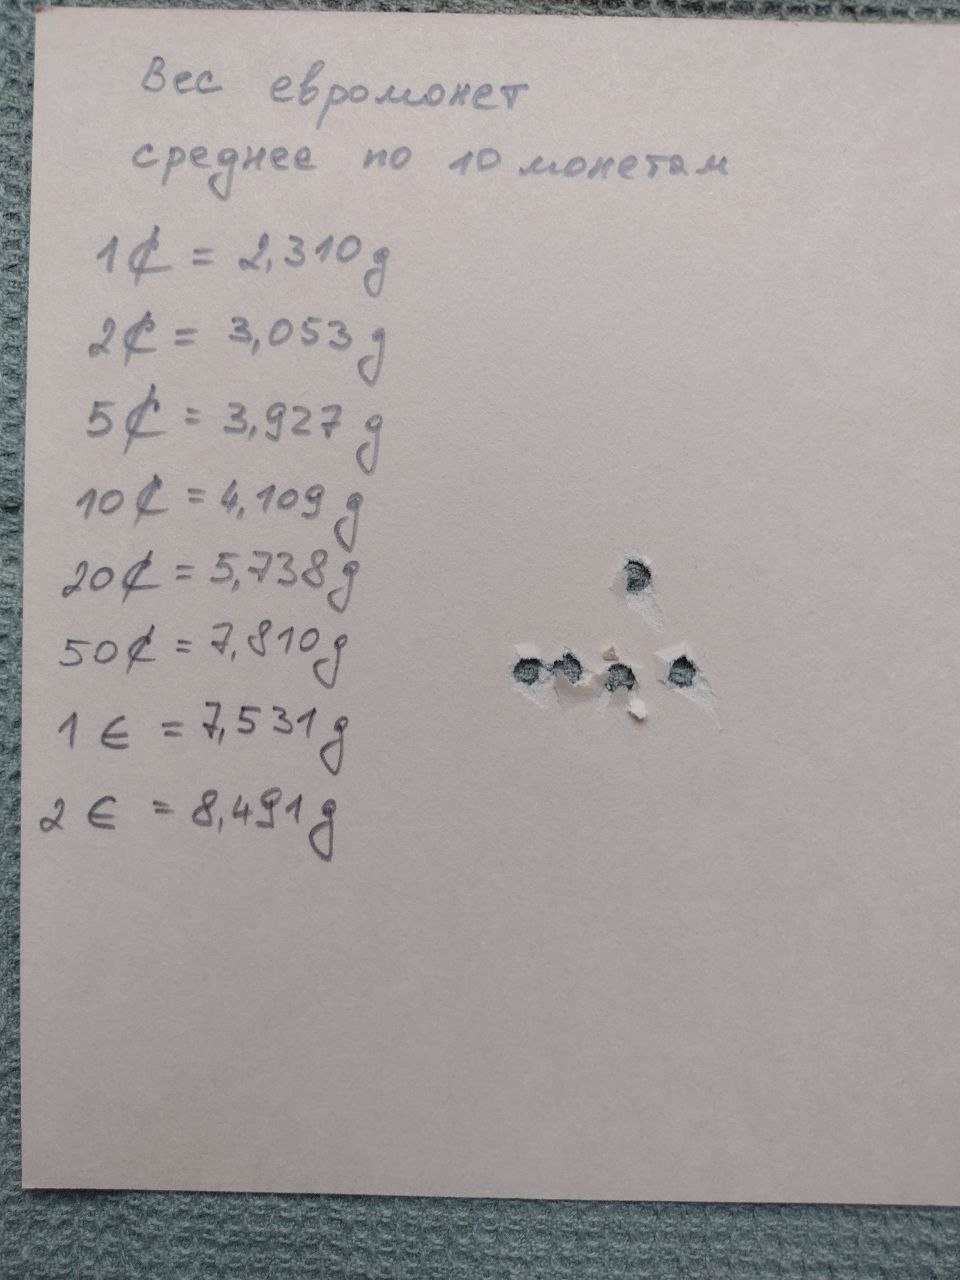 Вес евромонет
среднее по 10 монетам
1₵ = 2,310g
2₵ = 3,053g
5₵ = 3,927g
10₵ = 4,109g
20₵ = 5,738g
50₵ = 7,810g
1€ = 7,531g
2€ = 8,491g